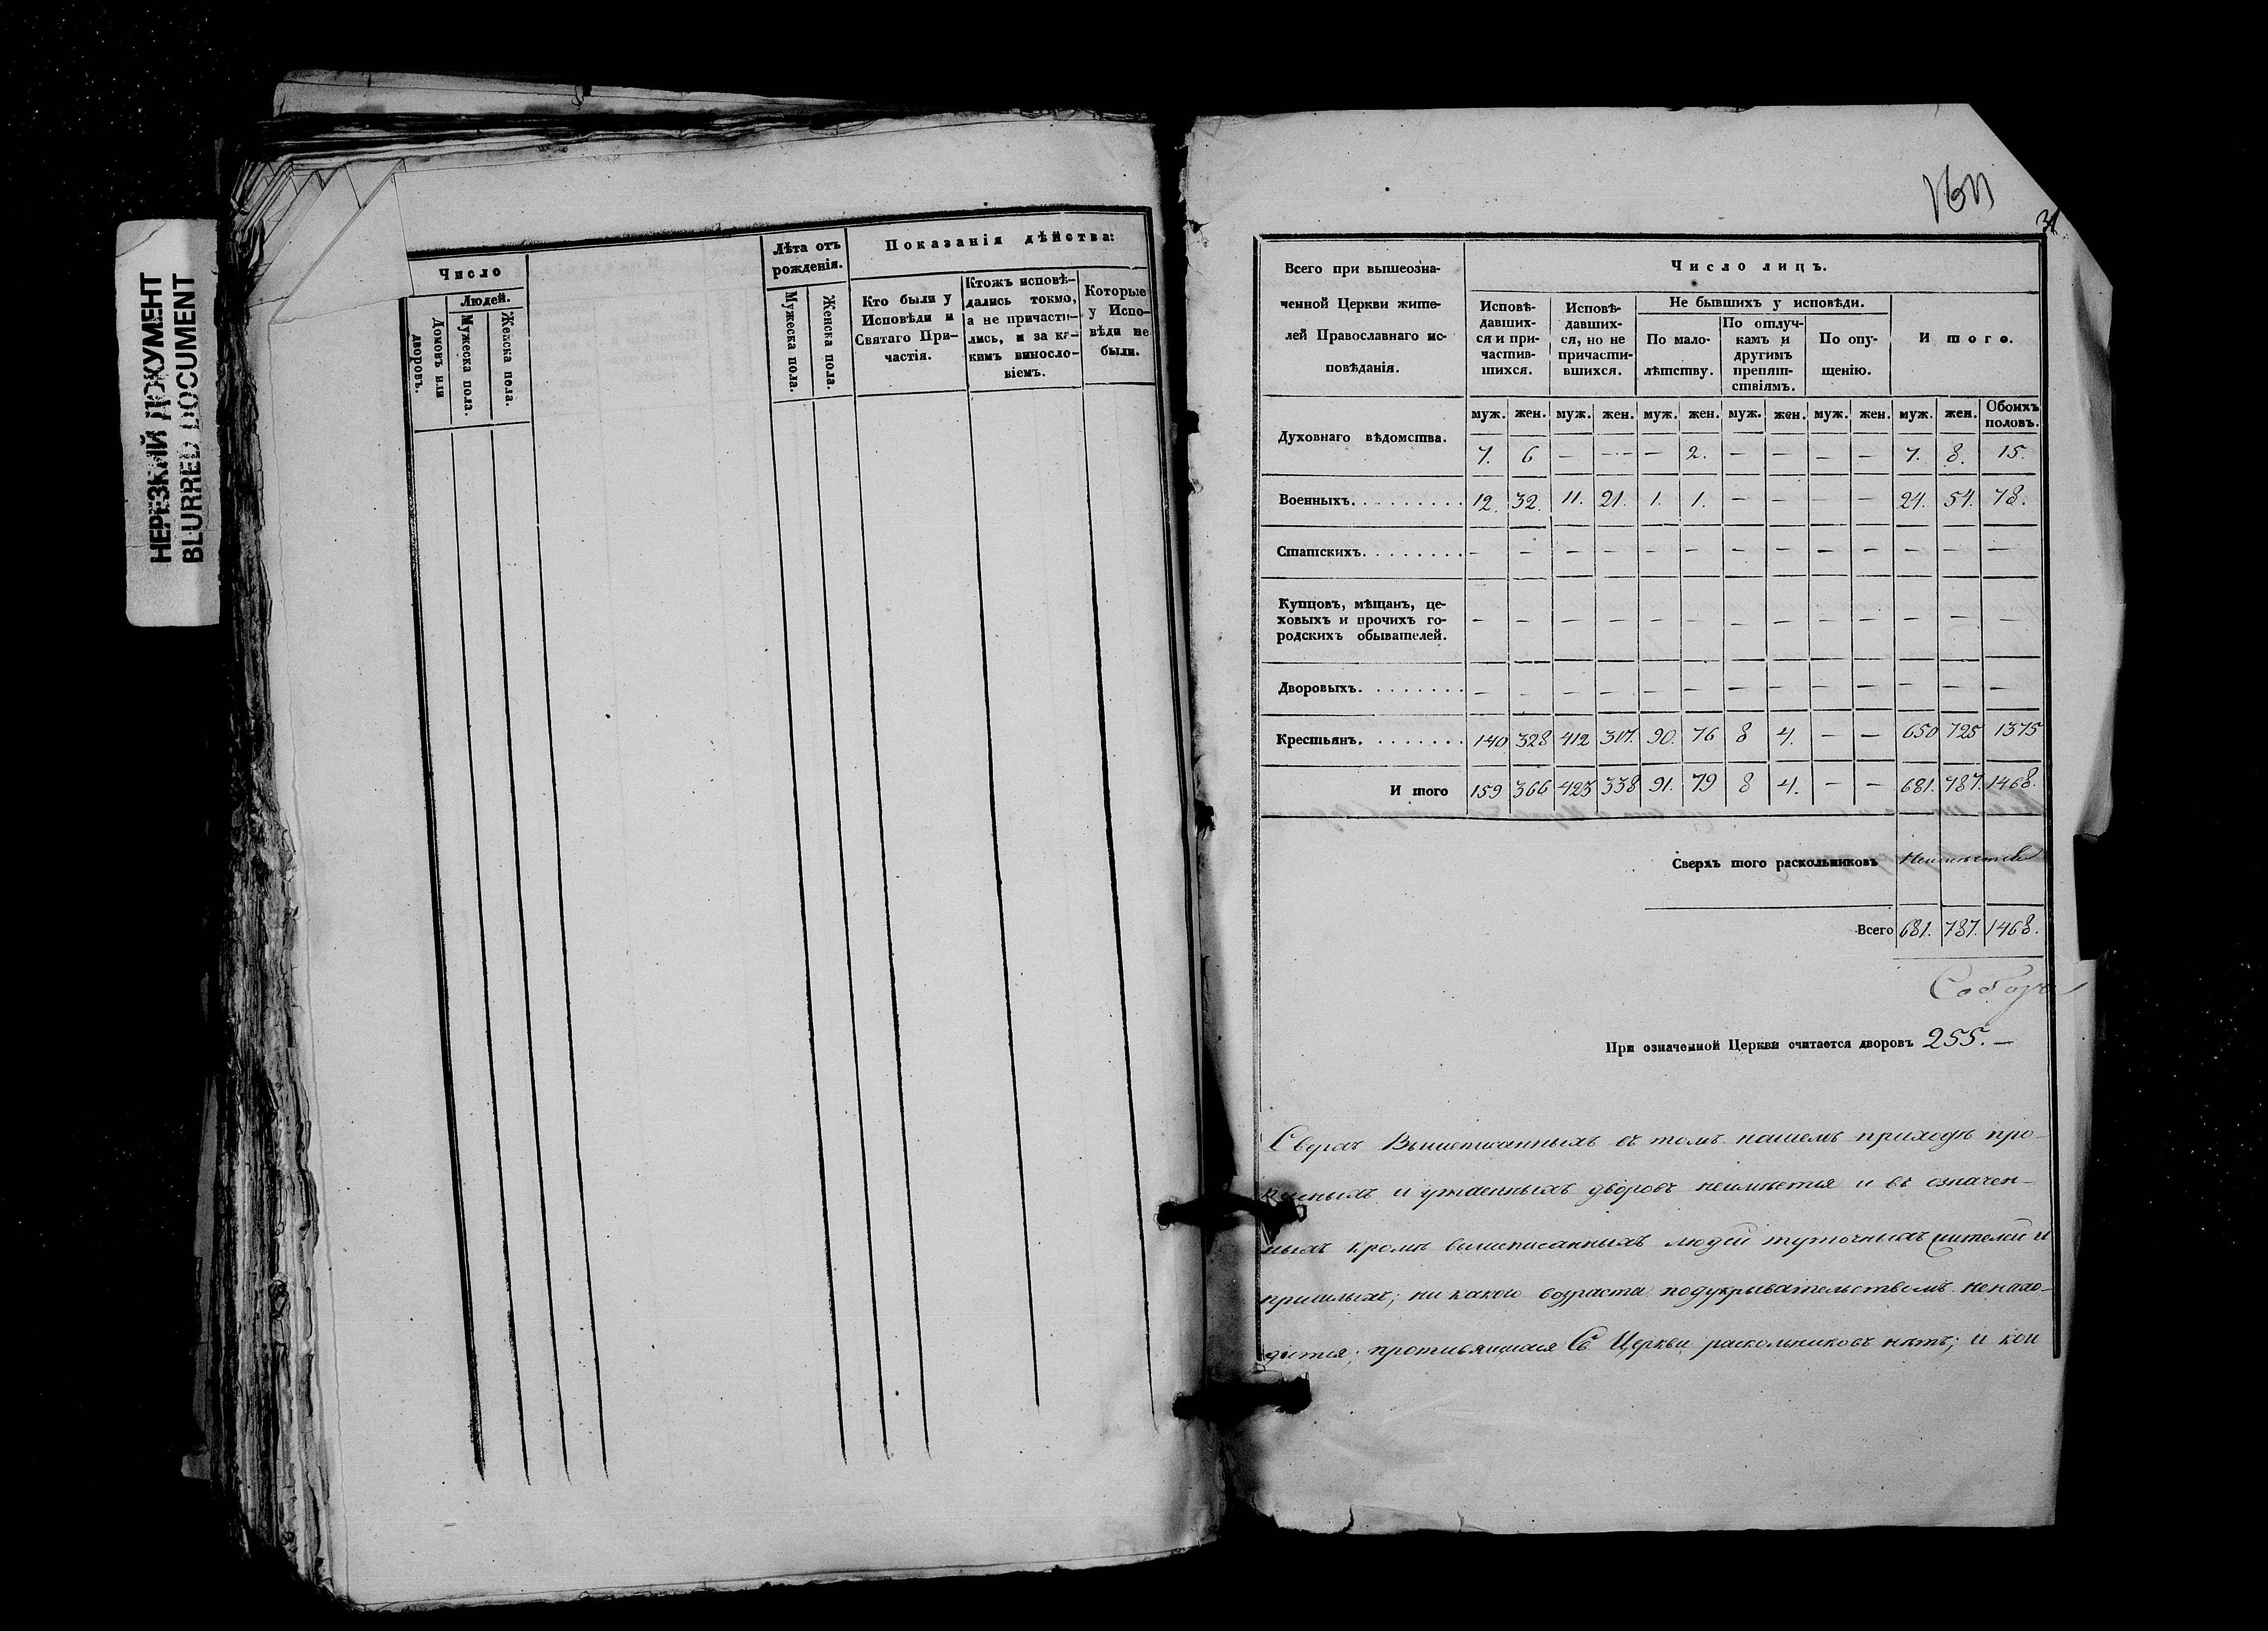 НЕРЕЗКИЙ ДОКУМЕНТ
BLURRED DOCUMENT
Число
Людей.
Домовъ или дворовъ.
Мужеска пола.
Женска пола.
Лѣта отъ рожденія.
Мужеска пола.
Женска пола.
Показанія дѣйства:
Кто были у
Исповѣди и
Святаго При-
частія.
Ктожъ исповѣ-
дались токмо,
а не причасти-
лись, и за ка-
кимъ виносло-
віемъ.
Которые
у Испо-
вѣди не
были.
31
Всего при вышеозна-
ченной Церкви жите-
лей Православнаго ис-
повѣданія.
Число лицъ.
Исповѣ-
давших-
ся и при-
частив-
шихся.
Исповѣ-
давших-
ся, но не
причасти-
вшихся.
Не бывшихъ у исповѣди.
По мало-
лѣтству.
По отлуч-
камъ и
другимъ
препят-
ствіямъ.
По опу-
щенію.
И того.
муж. жен. муж. жен. муж. жен. муж. жен. муж. жен. муж. жен. Обоихъ половъ.
Духовнаго вѣдомства. 7. 6 — — — 2. — — — — 7. 8. 15.
Военныхъ. 12. 32. 11. 21. 1. 1. — — — — 24. 54. 78.
Статскихъ. — — — — — — — — — — — — —
Купцовъ, мѣщанъ, це-
ховыхъ и прочихъ го-
родскихъ обывателей. — — — — — — — — — — — — —
Дворовыхъ. — — — — — — — — — — — — —
Крестьянъ. 140 328 412 317. 90. 76 8 4. — — 650 725 1375
И того 159 366 423 338 91. 79 8 4. — — 681. 787. 1468.
Сверхъ того раскольниковъ Неимѣется
Всего 681. 787. 1468.
При означенной Церкви считается дворовъ 255. —
Сверхъ Вышеписанныхъ въ томъ нашемъ приходѣ про-
писныхъ и утаенныхъ дворовъ неимѣется и въ означен-
ныхъ кромѣ вышеписанныхъ людей туточныхъ жителей и
пришлыхъ; ни какого возраста подукрывательствомъ ненахо-
дится; противящихся Св. Церкви раскольниковъ нѣтъ; и кои